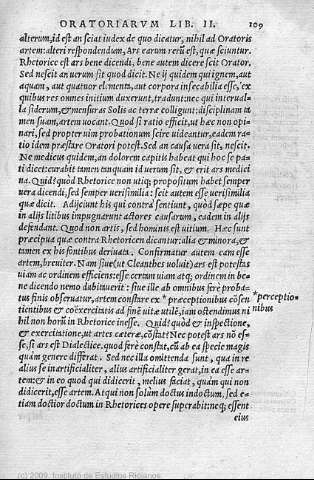 ORATORIARVM LIB. II. 109
alterum, id est an sciat iudex de quo dicatur, nihil ad Oratoris
artem: alteri respondendum, Ars earum rerū est, quæ sciuntur.
Rhetorice est ars bene dicendi, bene autem dicere scit Orator.
Sed nescit an uerum sit quod dicit. Ne ij quidem qui ignem, aut
aquam, aut quatuor elementa, aut corpora insecabilia esse, ex
quibus res omnes initium duxerint, tradunt: nec qui interual-
la siderum, & mensuras Solis ac terræ colligunt: disciplinam ta
men suam, artem uocant. Quod si ratio efficit, ut hæc non opi-
nari, sed propter uim probationum scire uideantur, eadem ra-
tio idem præstare Oratori potest. Sed an causa uera sit, nescit.
Ne medicus quidem, an dolorem capitis habeat qui hoc se pa-
ti dicet: curabit tamen tanquam id uerum sit, & erit ars medici
na. Quid? quòd Rhetorice non utiq; propositum habet semper
uera dicendi, sed semper uerisimilia? scit autem esse uerisimilia
quæ dicit. Adijciunt his qui contra sentiunt, quòd sæpe quæ
in alijs litibus impugnarunt actores causarum, eadem in alijs
defendant. Quod non artis, sed hominis est uitium. Hæc sunt
præcipua quæ contra Rhetoricen dicantur: alia & minora, &
tamen ex his fontibus deriuata. Confirmatur autem eam esse
artem, breuiter. Nam siue (ut Cleanthes uoluit) ars est potestas
uiam ac ordinem efficiens: esse certam uiam atq; ordinem in be-
ne dicendo nemo dubitauerit: siue ille ab omnibus ferè proba-
tus finis obseruatur, artem constare ex * præceptionibus cōsen
tientibus & coëxercitatis ad finē uitæ utilē, iam ostendimus ni
hil non horū in Rhetorice inesse. Quid? quòd & inspectione,
& exercitatione, ut artes cæteræ, cōstat? Nec potest ars nō es-
se, si ars est Dialectice. quod ferè constat, cū ab ea specie magis
quàm genere differat. Sed nec illa omittenda sunt, qua in re
alius se inartificialiter, alius artificialiter gerat, in ea esse ar-
tem: & in eo quod qui didicerit, melius faciat, quàm qui non
didicerit, esse artem. Atqui non solùm doctus indoctum, sed e-
tiam doctior doctum in Rhetorices opere superabit: neq; essent
eius
*perceptio-
nibus
(c) 2009, Instituto de Estudios Riojanos